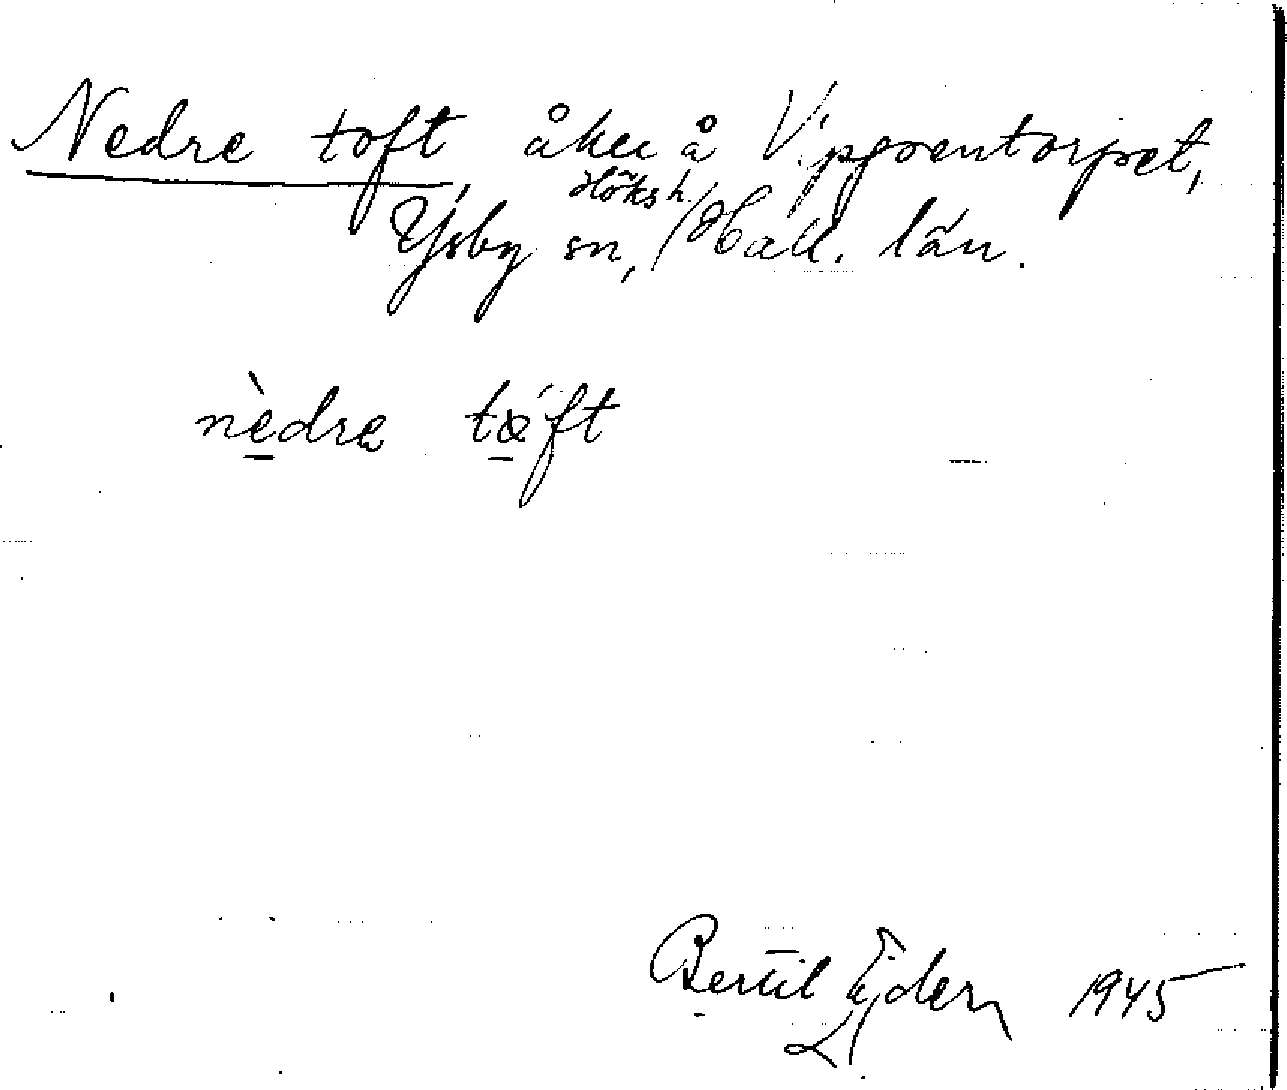 Nedre toft, åker å Vipgrentorpet,
Höksh.
Ysby sn, Hall. län.
nèdre tǿft
Bertil Ejder 1945